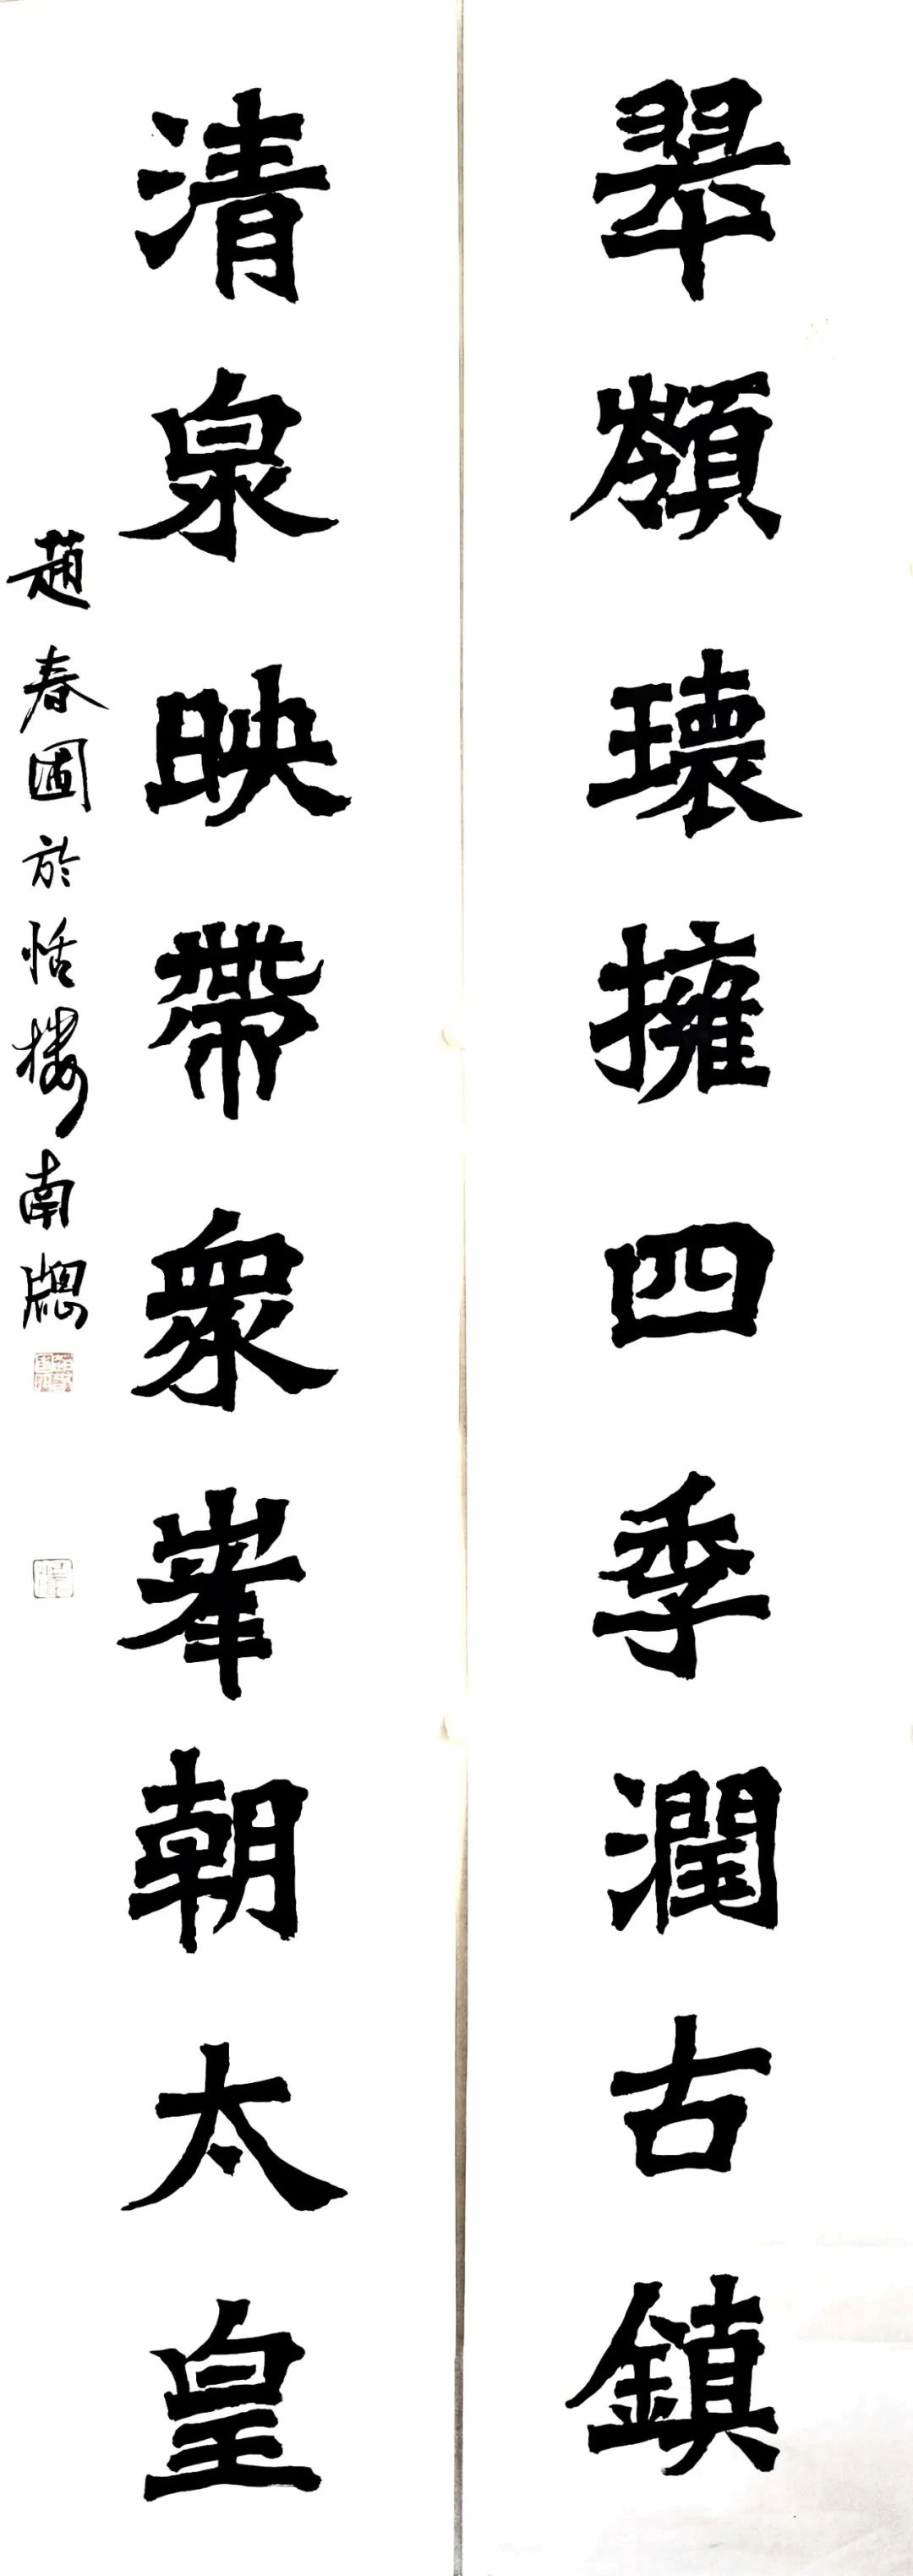 翠嶺環擁四季潤古鎮
清泉映帶衆峯朝太皇
趙春圃於恬樓南牕